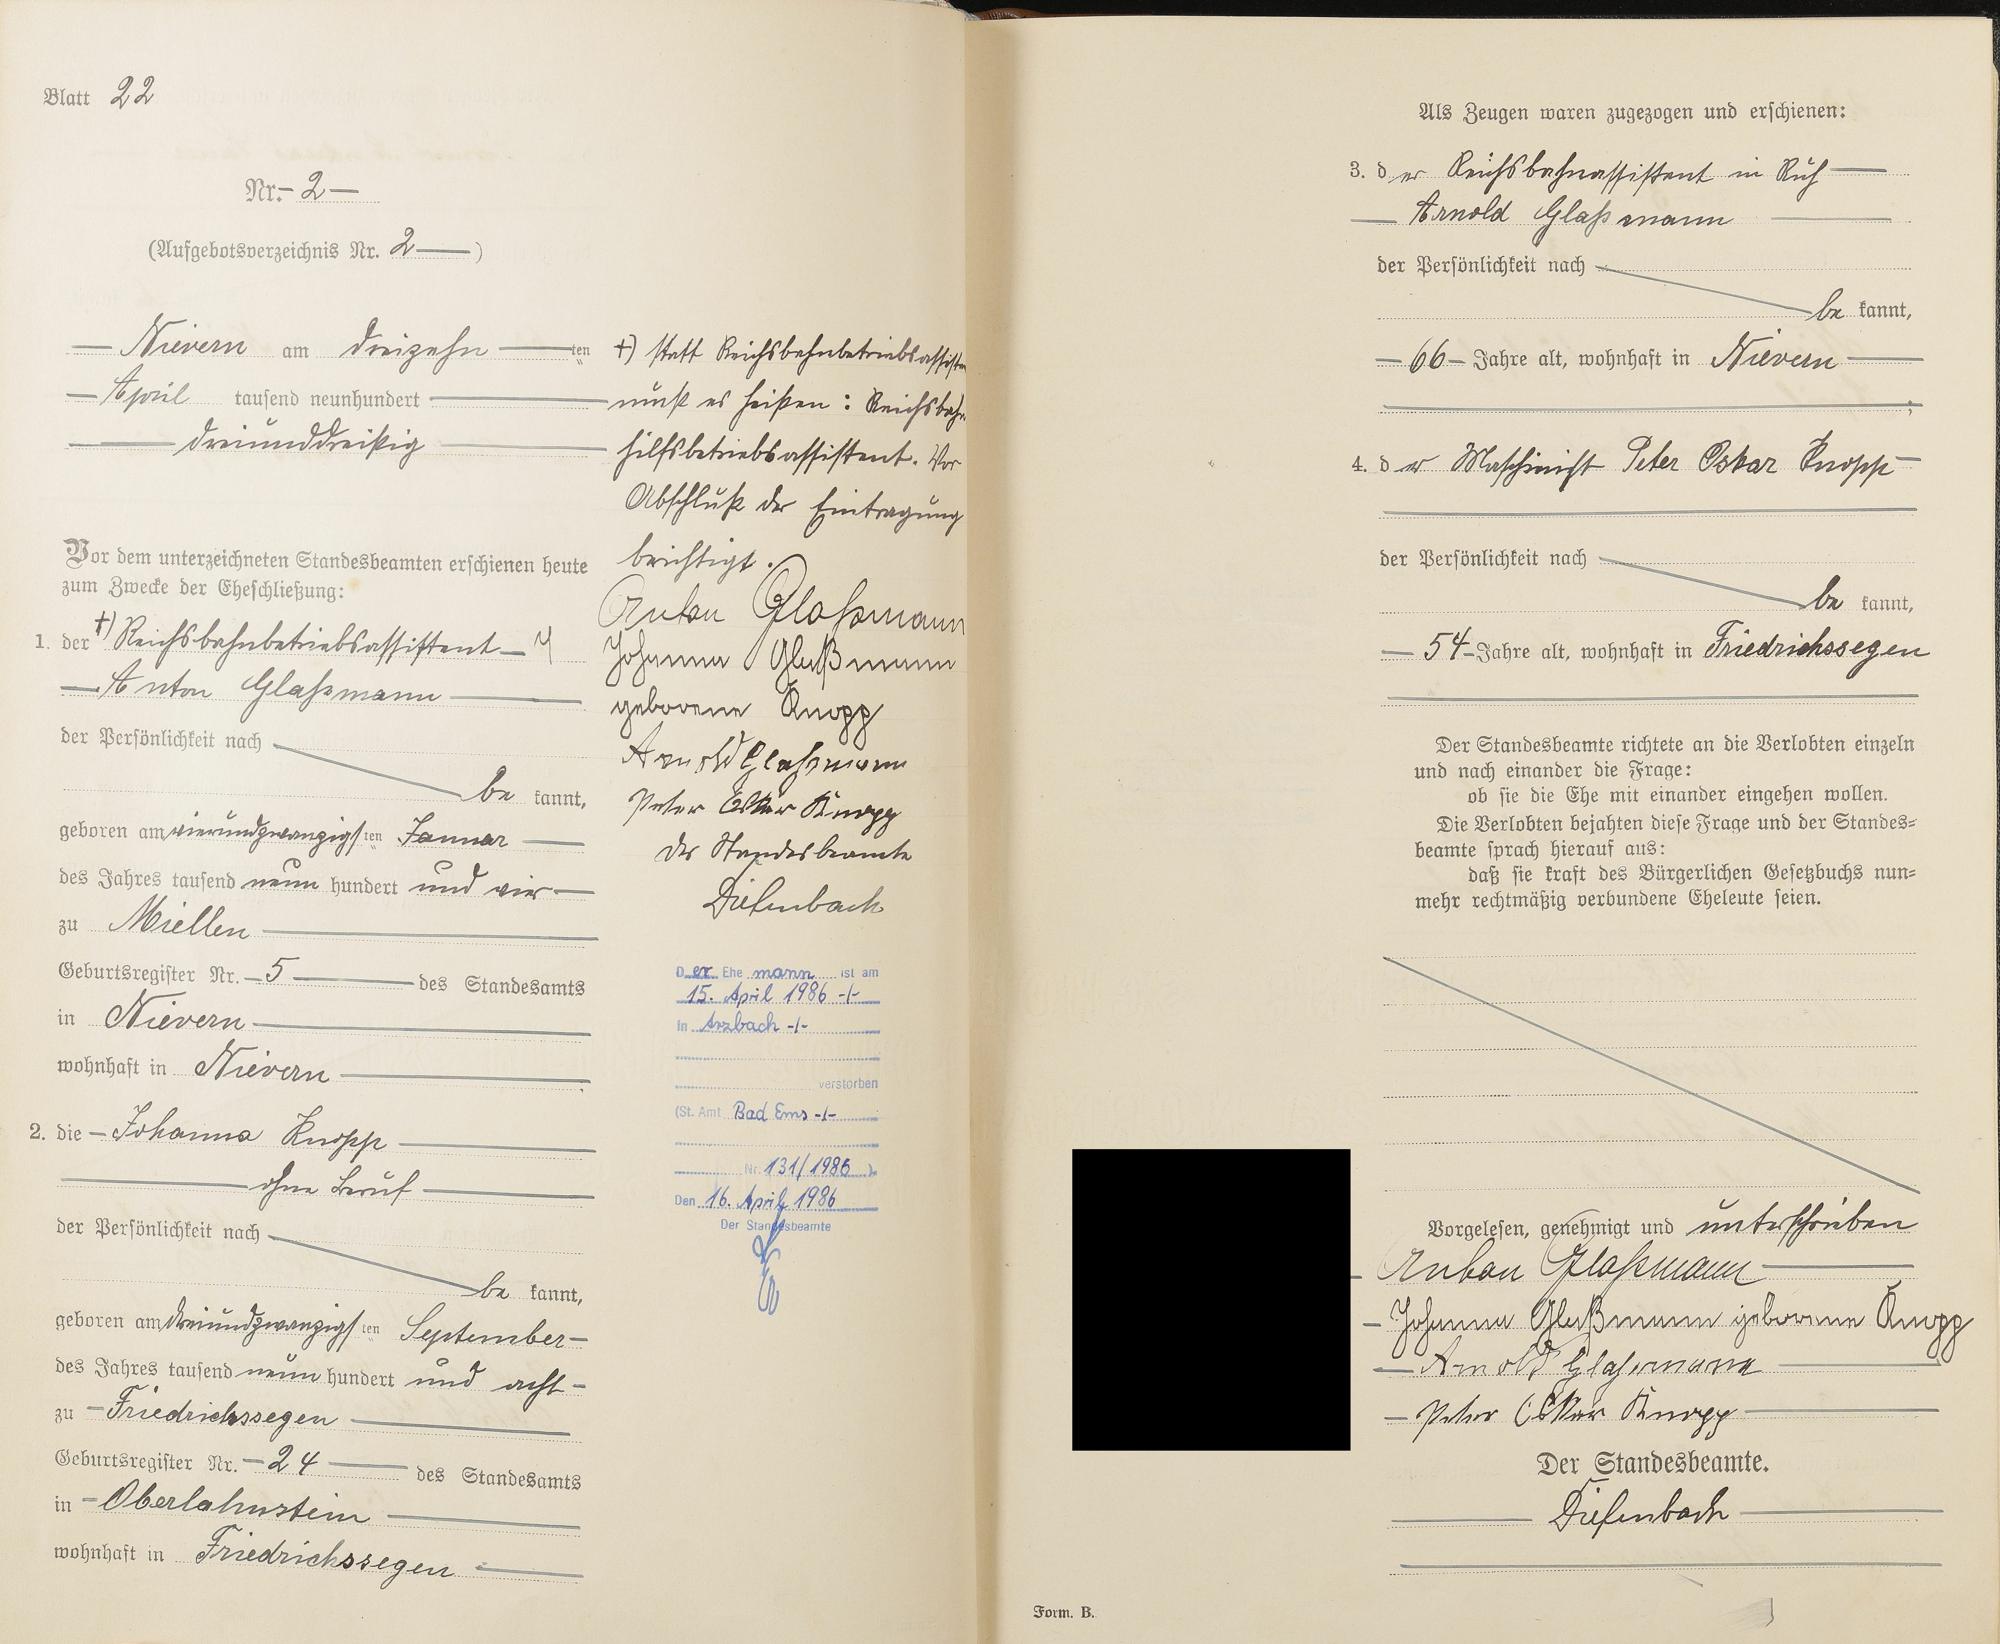 Blatt 22
Nr. 2
(Aufgebotsverzeichnis Nr. 2)
Nievern am dreizehnten
April tausend neunhundert
dreiunddreißig
Vor dem unterzeichneten Standesbeamten erschienen heute
zum Zwecke der Eheschließung:
1. der †) Reichsbahnbetriebsassistent
Anton Glaßmann
der Persönlichkeit nach
be kannt,
geboren am vierundzwanzigsten Januar
des Jahres tausend neun hundert und vier
zu Miellen
Geburtsregister Nr. 5 des Standesamts
in Nievern
wohnhaft in Nievern
2. die Johanna Knopp
ohne Beruf
der Persönlichkeit nach
be kannt,
geboren am dreiundzwanzigsten September
des Jahres tausend neun hundert und acht
zu Friedrichssegen
Geburtsregister Nr. 24 des Standesamts
in Oberlahnstein
wohnhaft in Friedrichssegen
†) statt Reichsbahnbetriebsassisten
muß es heißen: Reichsbahn
hilfsbetriebsassistent. Vor
Abschluß der Eintragung
berichtigt.
Anton Glaßmann
Johanna Glaßmann
geborene Knopp
Arnold Glaßmann
Peter Oskar Knopp
Der Standesbeamte
Diefenbach
Der Ehe mann ist am
15. April 1986 -/-
in Arzbach -/-
verstorben
(St. Amt Bad Ems -/-
Nr. 131/1986)
Den 16. April 1986
Der Standesbeamte
Als Zeugen waren zugezogen und erschienen:
3. der Reichsbahnassistent in Ruh
Arnold Glaßmann
der Persönlichkeit nach
be kannt,
66 Jahre alt, wohnhaft in Nievern
;
4. der Maschinist Peter Oskar Knopp
der Persönlichkeit nach
be kannt,
54 Jahre alt, wohnhaft in Friedrichssegen
Der Standesbeamte richtete an die Verlobten einzeln
und nach einander die Frage:
ob sie die Ehe mit einander eingehen wollen.
Die Verlobten bejahten diese Frage und der Standes-
beamte sprach hierauf aus:
daß sie kraft des Bürgerlichen Gesetzbuchs nun-
mehr rechtmäßig verbundene Eheleute seien.
Vorgelesen, genehmigt und unterschrieben
Anton Glaßmann
Johanna Glaßmann geborene Knopp
Arnold Glaßmann
Peter Oskar Knopp
Der Standesbeamte.
Diefenbach
Form. B.